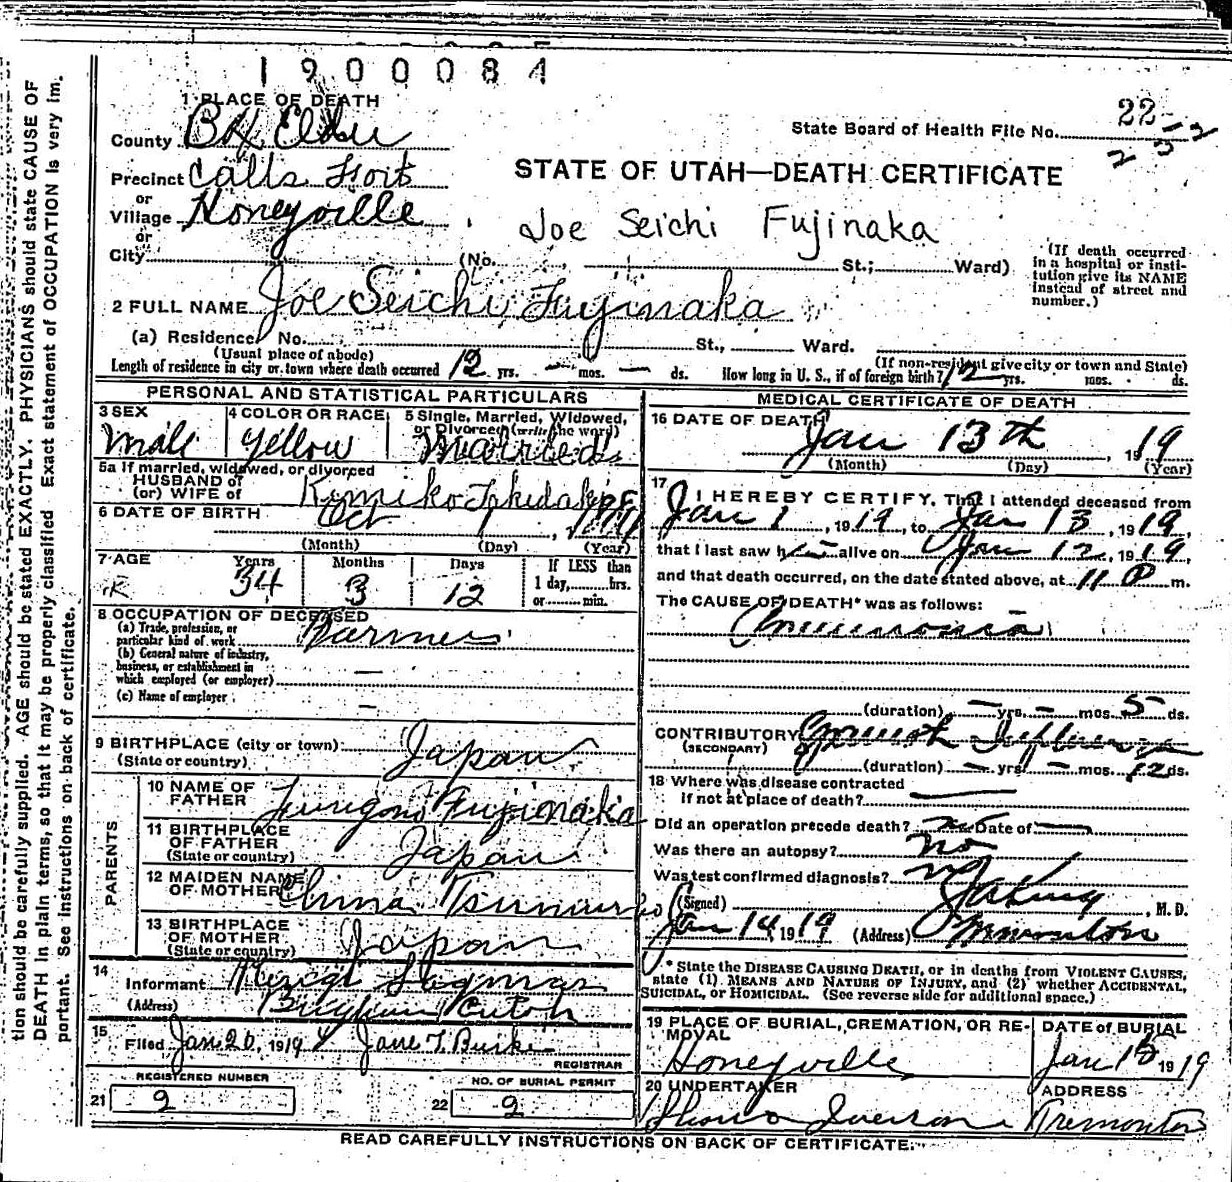 1900084
1 PLACE OF DEATH
County Box Elder
State Board of Health File No. 22
Precinct Calls Fort
STATE OF UTAH—DEATH CERTIFICATE
or
Village Honeyville
Joe Seichi Fujinaka
or
City (No. St.; Ward)
(If death occurred in a hospital or institution give its NAME instead of street and number.)
2 FULL NAME Joe Seichi Fujinaka
(a) Residence No. St., Ward.
(Usual place of abode) (If non-resident give city or town and State)
Length of residence in city or town where death occurred 12 yrs. — mos. — ds. How long in U. S., if of foreign birth? 12 yrs. mos. ds.
PERSONAL AND STATISTICAL PARTICULARS
3 SEX Male
4 COLOR OR RACE Yellow
5 Single, Married, Widowed, or Divorced (write the word) Married
5a If married, widowed, or divorced
HUSBAND of
(or) WIFE of Kimiko
6 DATE OF BIRTH Oct 1
(Month) (Day) (Year)
7 AGE Years 34 Months 3 Days 12
If LESS than 1 day, hrs. or min.
8 OCCUPATION OF DECEASED
(a) Trade, profession, or particular kind of work Farmer
(b) General nature of industry, business, or establishment in which employed (or employer) —
(c) Name of employer —
9 BIRTHPLACE (city or town)
(State or country) Japan
PARENTS
10 NAME OF FATHER Fujinaka
11 BIRTHPLACE OF FATHER (State or country) Japan
12 MAIDEN NAME OF MOTHER China
13 BIRTHPLACE OF MOTHER (State or country) Japan
14
Informant
(Address) Brigham Utah
15
Filed Jan 20, 1919 Jane T. Burke
REGISTRAR
REGISTERED NUMBER
21 2
NO. OF BURIAL PERMIT
22 2
MEDICAL CERTIFICATE OF DEATH
16 DATE OF DEATH Jan 13th, 1919
(Month) (Day) (Year)
17 I HEREBY CERTIFY, That I attended deceased from
Jan 1, 1919, to Jan 13, 1919,
that I last saw him alive on Jan 12, 1919,
and that death occurred, on the date stated above, at 11 P m.
The CAUSE OF DEATH* was as follows:
Pneumonia
(duration) — yrs. — mos. 5 ds.
CONTRIBUTORY Spanish Influenza
(SECONDARY)
(duration) — yrs. — mos. 12 ds.
18 Where was disease contracted
if not at place of death?
Did an operation precede death? no Date of —
Was there an autopsy? no
Was test confirmed diagnosis? no
(Signed) , M. D.
Jan 14, 1919 (Address) Tremonton
* State the DISEASE CAUSING DEATH, or in deaths from VIOLENT CAUSES, state (1) MEANS AND NATURE OF INJURY, and (2) whether ACCIDENTAL, SUICIDAL, or HOMICIDAL. (See reverse side for additional space.)
19 PLACE OF BURIAL, CREMATION, OR REMOVAL Honeyville
DATE of BURIAL Jan 15 1919
20 UNDERTAKER Iverson
ADDRESS Tremonton
READ CAREFULLY INSTRUCTIONS ON BACK OF CERTIFICATE.
tion should be carefully supplied. AGE should be stated EXACTLY. PHYSICIANS should state CAUSE OF
DEATH in plain terms, so that it may be properly classified. Exact statement of OCCUPATION is very im-
portant. See instructions on back of certificate.